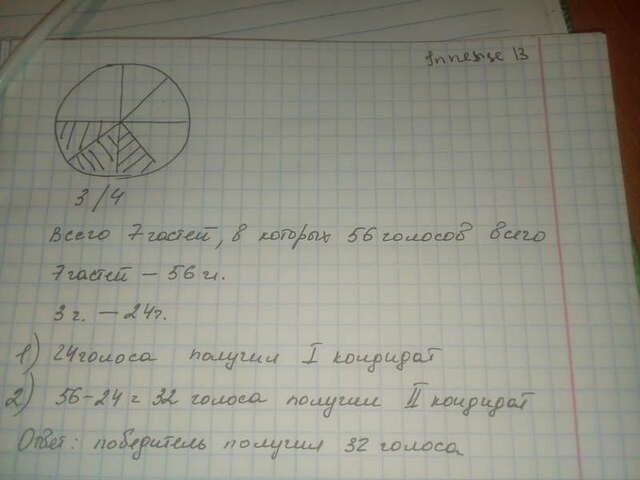 3/4
Всего 7 частей, в которых 56 голосов всего
7 частей — 56 г.
3 ч. — 24 г.
1) 24 голоса получил I кондидат
2) 56-24 = 32 голоса получил II кондидат
Ответ: победитель получил 32 голоса